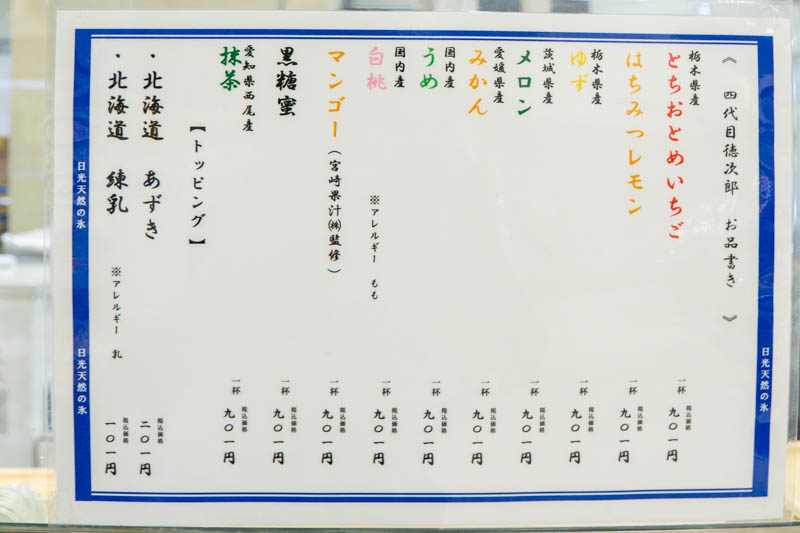 《 四代目徳次郎 お品書き 》
栃木県産
とちおとめいちご 一杯 税込価格 九〇一円
はちみつレモン 一杯 税込価格 九〇一円
栃木県産
ゆず 一杯 税込価格 九〇一円
茨城県産
メロン 一杯 税込価格 九〇一円
愛媛県産
みかん 一杯 税込価格 九〇一円
国内産
うめ 一杯 税込価格 九〇一円
国内産
白桃 ※アレルギー もも 一杯 税込価格 九〇一円
マンゴー(宮崎果汁㈱監修) 一杯 税込価格 九〇一円
黒糖蜜 一杯 税込価格 九〇一円
愛知県西尾産
抹茶 一杯 税込価格 九〇一円
【トッピング】
・北海道 あずき 税込価格 二〇一円
・北海道 練乳 ※アレルギー 乳 税込価格 一〇一円
日光天然の氷
日光天然の氷
日光天然の氷